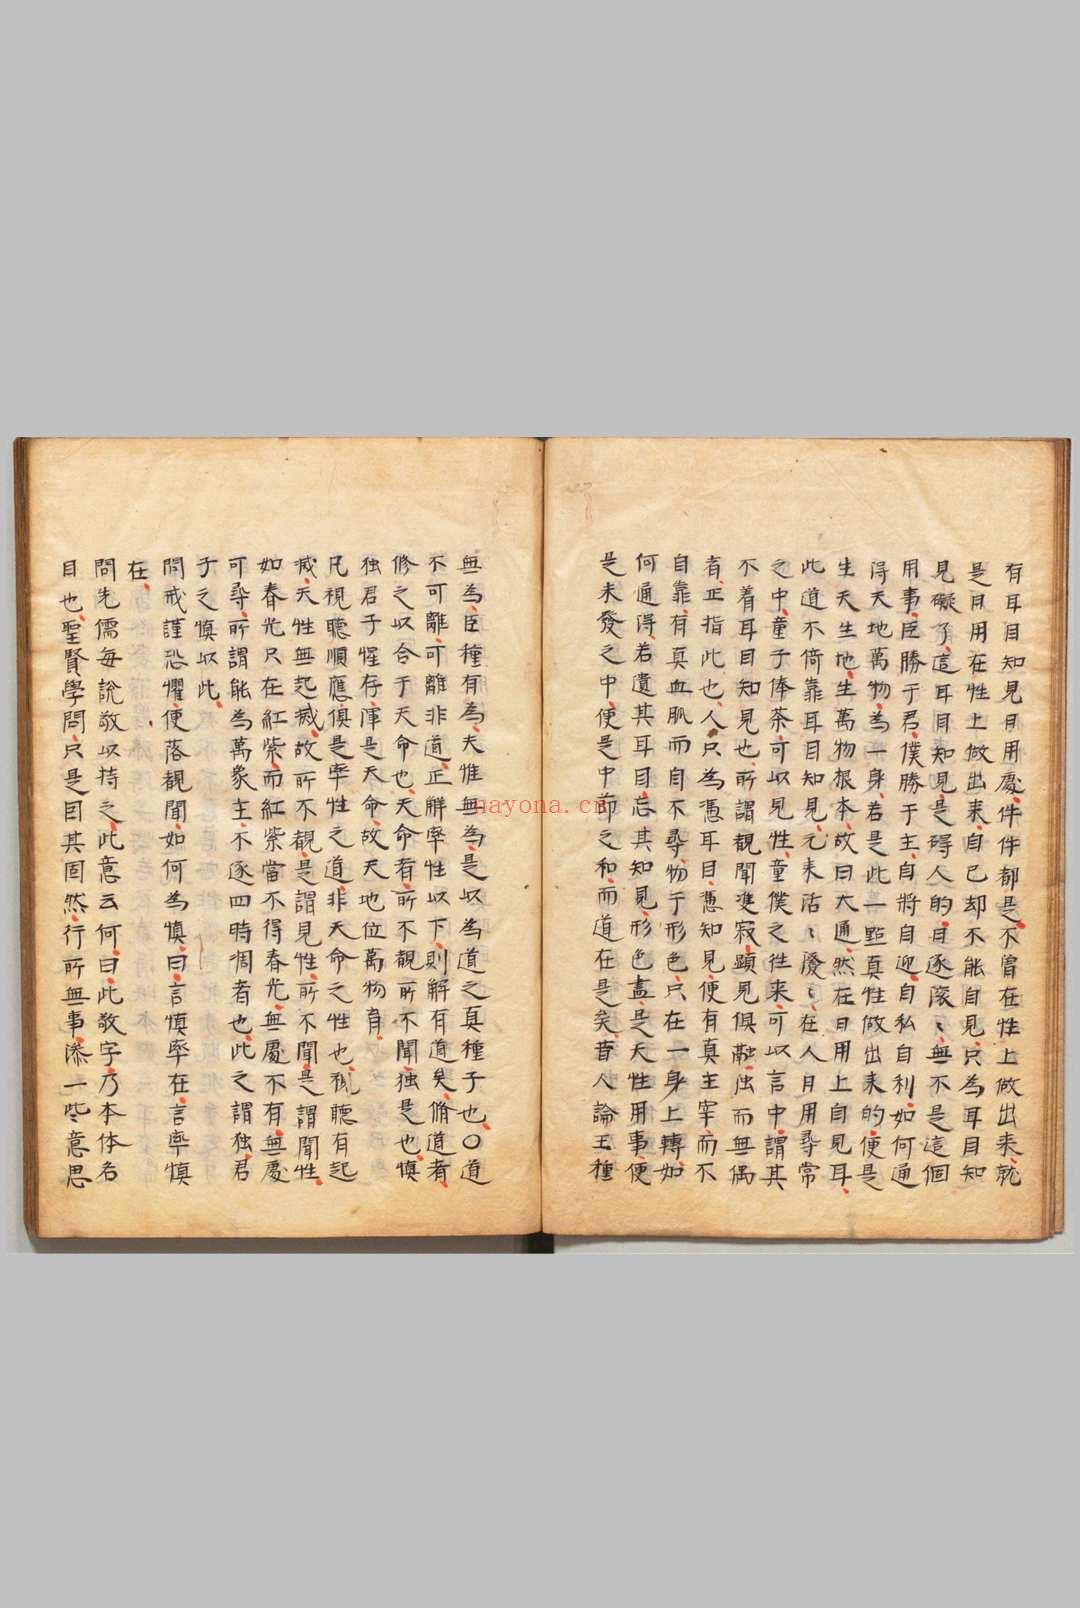 有耳目知見日用處件件都是不曾在性上做出来就
是日用在性上做出来自己却不能自見只為耳目知
見礙了這耳目知見是碍人的日逐滚〻無不是這個
用事臣勝于君僕勝于主自將自迎自私自利如何通
得天地萬物為一身若是此一點真性做出来的便是
生天生地生萬物根本故曰大通然在日用上自見耳
此道不倚靠耳目知見元来活〻潑〻在人日用尋常
之中童子俸茶可以見性童僕之徃来可以言中謂其
不着耳目知見也所謂覩聞雙寂顕見俱融浊而無偶
者正指此也人只為憑耳目憑知見便有真主宰而不
自靠有真血肌而自不尋物于形色只在一身上轉如
何通得若遺其耳目忘其知見形色盡是天性用事便
是未發之中便是中節之和而道在是矣昔人論王種
無為臣種有為夫惟無為是以為道之真種子也〇道
不可離可離非道正解率性以下則解有道矣脩道者
修之以合于天命也天命者所不覩所不聞独是也慎
独君子惺存渾是天命故天地位萬物育
凡視聽順應俱是率性之道非天命之性也視聽有起
滅天性無起滅故所不覩是謂見性所不聞是謂聞性
如春光只在紅紫而紅紫當不得春光無處不有無處
可尋所謂能為萬象主不逐四時凋者也此之謂独君
子之慎以此
問戒謹恐懼便落覩聞如何為慎曰言慎率在言率慎
在
問先儒每說敬以持之此意云何曰此敬字乃本体名
目也聖賢學問只是因其固然行所無事添一些意思
nayona.cn